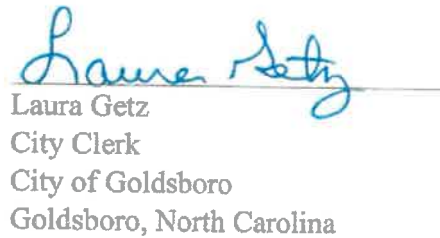 Laura Getz
Laura Getz
City Clerk
City of Goldsboro
Goldsboro, North Carolina